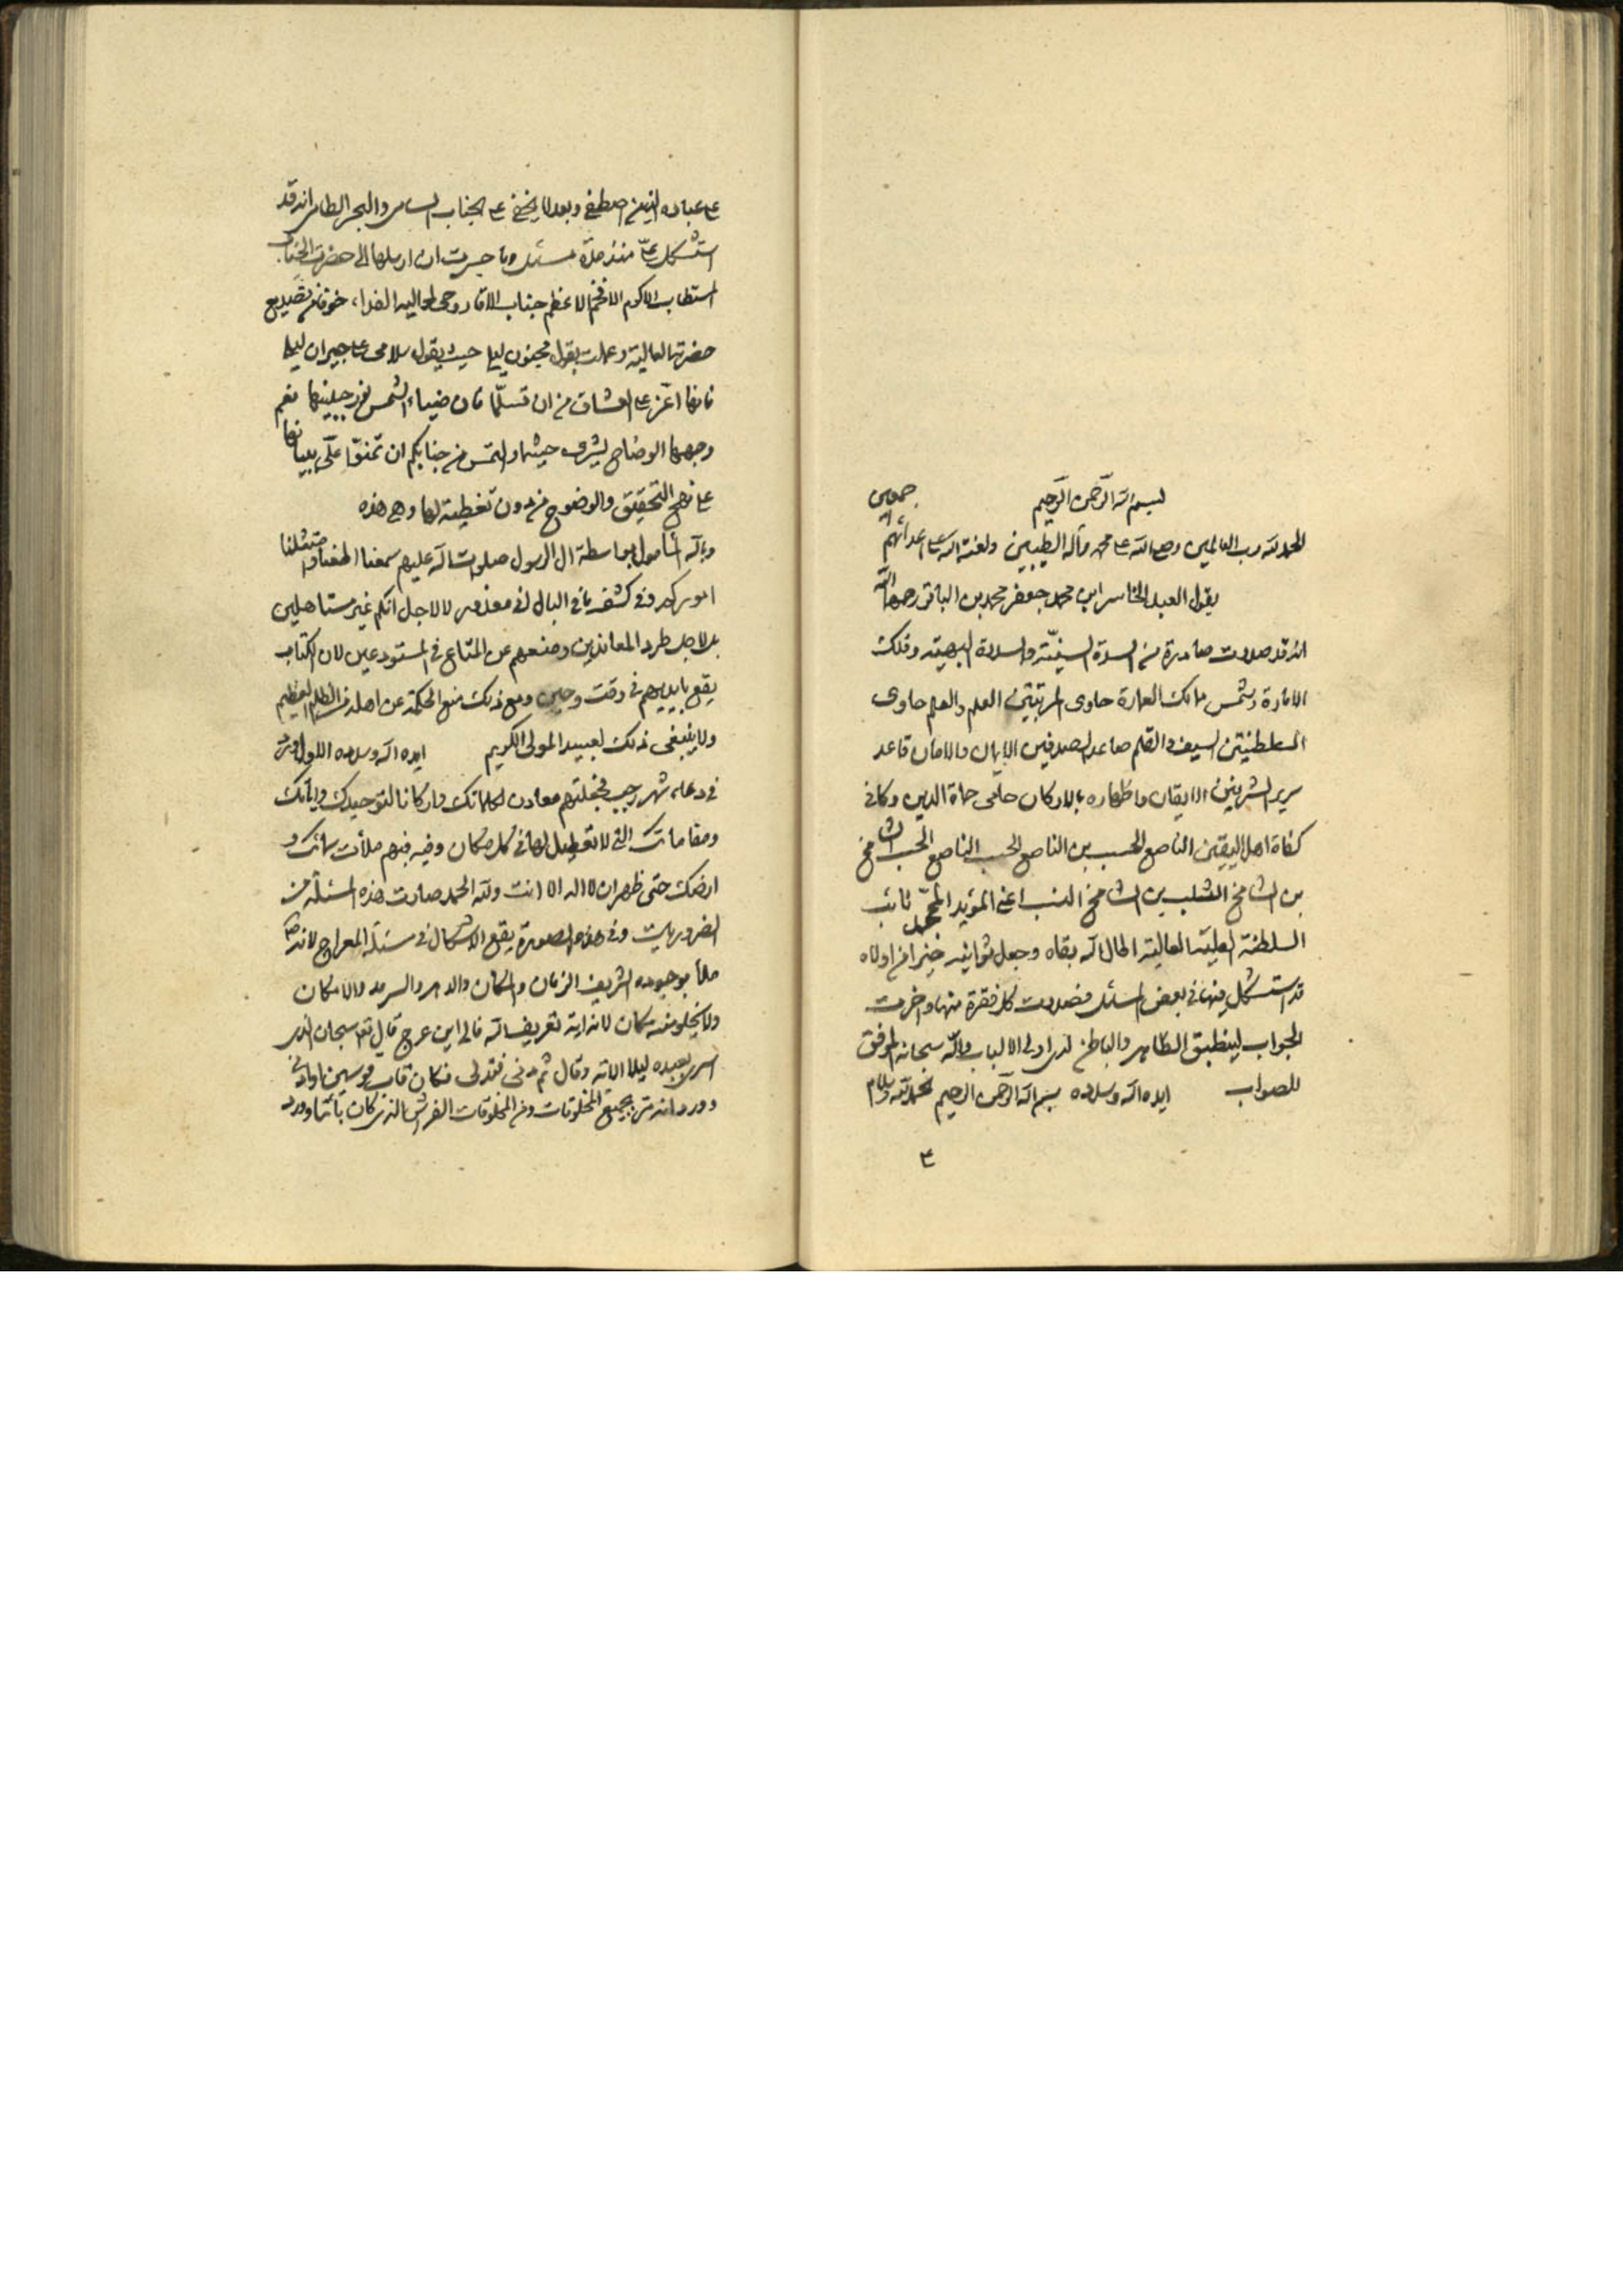 بسم الله الرحمن الرحيم
الحمد لله رب العالمين وصلى الله على محمد وآله الطيبين ولعنة الله على اعدائهم اجمعين
يقول العبد الخاسر ابن محمد جعفر محمد بن الباقر رحمهما الله
انه قد صدرت صادرة من السدة السنية والسدة البهية وفلك
الامارة وشمس مالك العمارة حاوى المرتبتين العلم والعلم حاوى
السلطنتين السيف والقلم صاعد الصدفين الايمان والامان قاعد
سرير الشرفين الايقان واظهاره بالاركان حامى حماة الدين وكافى
كفاة اهل اليقين الناصع الحسب بن الناصع الحسب الناصع الحسب الشامخ
بن الشامخ النسب بن الشامخ النسب اعنى المؤيد الممجد نائب
السلطنة العلية العالية اطال الله بقاه وجعل ثوانيه خيرا من اولاه
قد استشكل فيها فى بعض المسئل فصدرت كل فقرة منها واخرت
الجواب لينطبق الظاهر والباطن لدى اولى الالباب والله سبحانه الموفق
للصواب ايده الله وسدده بسم الله الرحمن الرحيم الحمد لله وسلام
على عباده الذين اصطفى وبعد لا يخفى على الجناب السامى والبحر الطامى انه قد
استشكل على منذ مدة مسئل وما جسرت ان ارسلها الى حضرت الجناب
المستطاب الاكرم الافخم الاعظم جناب الاقا روحى لعاليه الفداء خوفا من تصديع
حضرتها العالية وعملت بقول مجنون ليلى حيث يقول سلامى على جيران ليلى
فانها اعز على العشاق من ان تسلما فان ضياء الشمس نور جبينها نعم
وجهها الوضاح يشرق حيثما والتمس من جنابكم ان تمنوا على ببيانها
على نهج التحقيق والوضوح من دون تغطية لها وهى هذه
والله المأمول بواسطة ال الرسول صلوات الله عليهم سمعنا واطعنا وامتثلنا
اموركم وفى كشف ما فى البال انى معذور لا لاجل انكم غير مستاهلين
بل لاجل طرد المعاندين ومنعهم عن المتاع فى المستودعين لان الكتاب
يقع بايديهم فى وقت وحين ومع ذلك منع الحكمة عن اهله من الظلم العظيم
ولا ينبغى ذلك لعبيد المولى الكريم ايده الله وسدده الاول ورد
فى دعاء شهر رجب فجعلتهم معادن لكلماتك واركانا لتوحيدك واياتك
ومقاماتك التى لا تعطيل لها فى كل مكان وفيه فبهم ملأت سمائك و
ارضك حتى ظهر ان لا اله الا انت ولله الحمد صارت هذه المسئلة من
الضروريات وفى هذه الصورة يقع الاشكال فى مسئلة المعراج لانه ص
ملأ بوجوده الشريف الزمان والمكان والدهر والسرمد والامكان
ولا يخلو منه مكان لانه اية تعريف الله فالى اين عرج قال تعالى سبحان الذى
اسرى بعبده ليلا الاية وقال ثم دنى فتدلى فكان قاب قوسين او ادنى
وورد انه مر بجميع المخلوقات ومن المخلوقات الفرش الذى كان نائما وورد